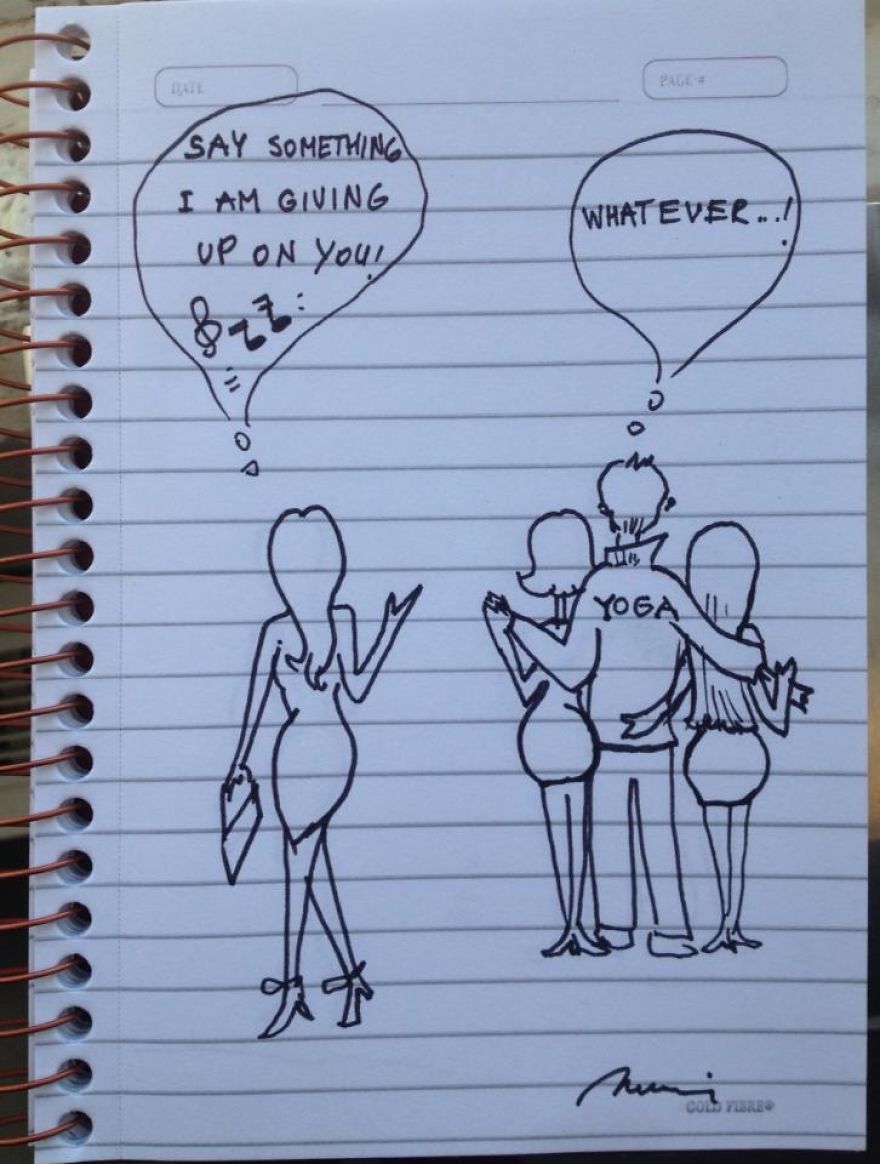 DATE
PAGE #
SAY SOMETHING
I AM GIVING
UP ON YOU!
WHATEVER...!
YOGA
GOLD FIBRE®